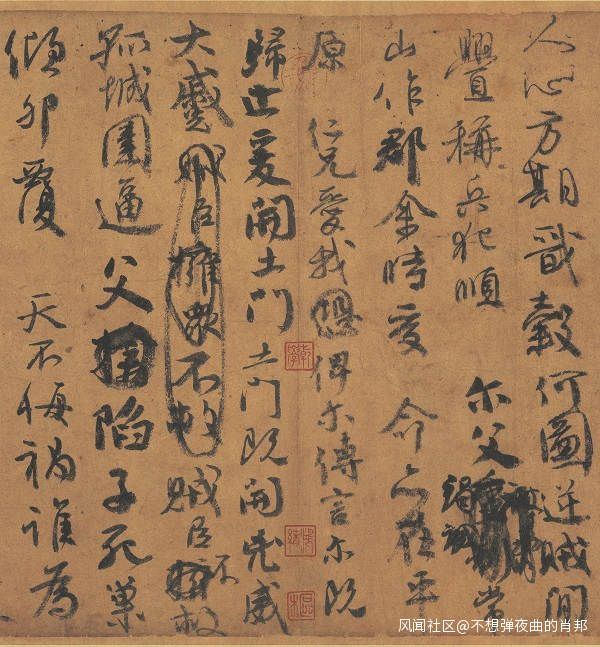 人心方期戩穀何圖逆賊間
釁稱兵犯順 尔父竭誠常
山作郡余時受 命亦在平
原 仁兄愛我恐俾尔傳言尔既
歸止爰開土門土門既開凶威
大蹙賊臣擁衆不救賊臣不救
孤城圍逼父陷子死巢
傾卵覆 天不悔禍誰為
风闻社区@不想弹夜曲的肖邦